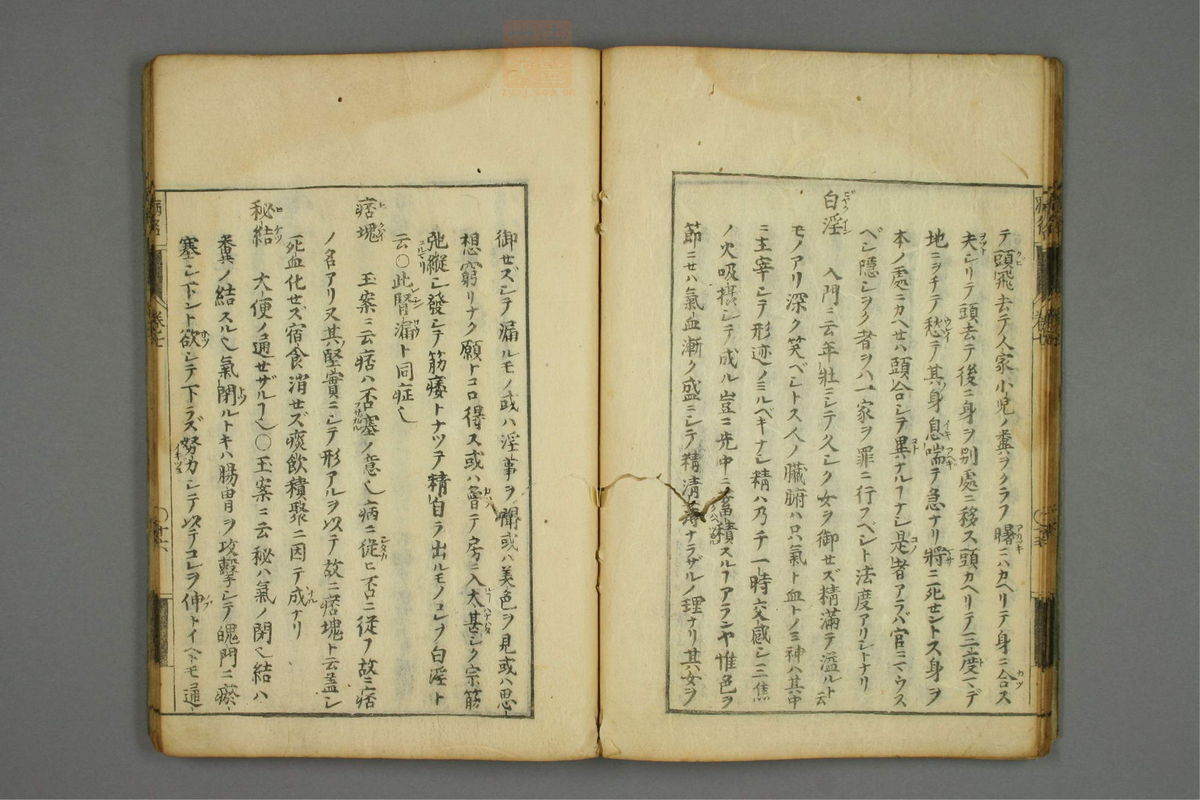 テ頭飛去テ人家小児ノ糞ヲクラフ曙ニハカヘリテ身ニ合ス
夫シリテ頭去テ後ニ身ヲ別處ニ移ス頭カヘリテ三度マデ
地ニヲチテ愁テ其身息喘テ急ナリ將ニ死セントス身ヲ
本ノ處ニカヘセハ頭合シテ異ナルヿナシ是者アラバ官ニマウス
ベシ隠シヲク者ヲハ一家ヲ罪ニ行フベシト法度アリシトナリ
白淫 入門ニ云年壯ニシテ久シク女ヲ御セズ精滿テ溢ルト云
モノアリ深ク笑ベシトス人ノ臓腑ハ只氣ト血トノミ神ハ其中
ニ主宰シテ形迹ノミルベキナシ精ハ乃チ一時交感シ三焦
ノ火吸撮シテ成ル豈ニ先中ニ蓄積スルヿアランヤ惟色ヲ
節ニセハ氣血漸ク盛ニシテ精清薄ナラザルノ理ナリ其女ヲ
御せズシテ漏ルモノ或ハ淫事ヲ聞或ハ美色ヲ見或ハ思
想窮リナク願トコロ得ス或ハ曾テ房ニ入太甚シク宗筋
弛縱シ發シテ筋痿トナツテ精自ラ出ルモノコレヲ白淫ト
云○此腎漏ト同症也
痞塊 玉案ニ云痞ハ否塞ノ意也病ニ従ヒ否ニ従フ故ニ痞
ノ名アリ又其堅實ニシテ形アルヲ以テ故ニ痞塊ト云蓋シ
死血化セズ宿食消セズ痰飲積聚ニ因テ成ナリ
秘結 大便ノ通せザルヿ也○玉案ニ云秘ハ氣ノ閉也結ハ
糞ノ結スル也氣閉ルトキハ腸胃ヲ攻撃シテ魄門ニ瘀
塞シ下ント欲シテ下ラズ努力シテ以テコレヲ伸トイヘドモ通